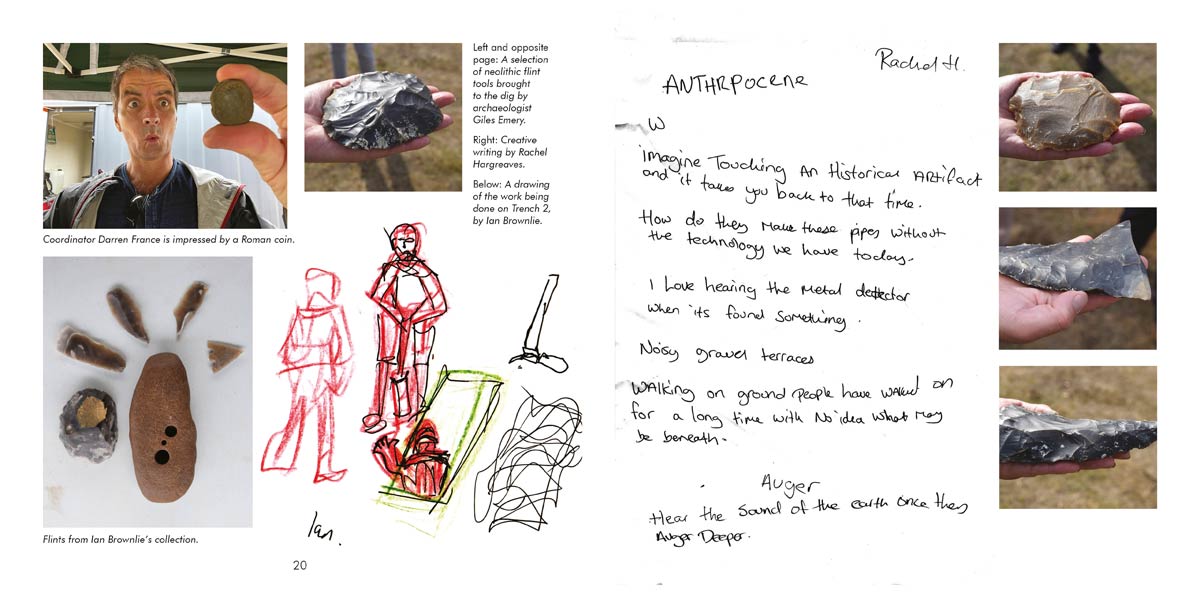 Coordinator Darren France is impressed by a Roman coin.
Left and opposite
page: A selection
of neolithic flint
tools brought
to the dig by
archaeologist
Giles Emery.
Right: Creative
writing by Rachel
Hargreaves.
Below: A drawing
of the work being
done on Trench 2,
by Ian Brownlie.
Flints from Ian Brownlie's collection.
Ian.
20
Rachel H.
ANTHRPOCENE
W
imagine Touching An Historical Artifact
and it takes you back to that time.
How do they make these pipes without
the technology we have today.
I Love hearing the metal detector
when its found something.
Noisy gravel terraces
Walking on ground people have walked on
for a long time with No idea what may
be beneath.
Auger
Hear the sound of the earth once they
Auger Deeper.